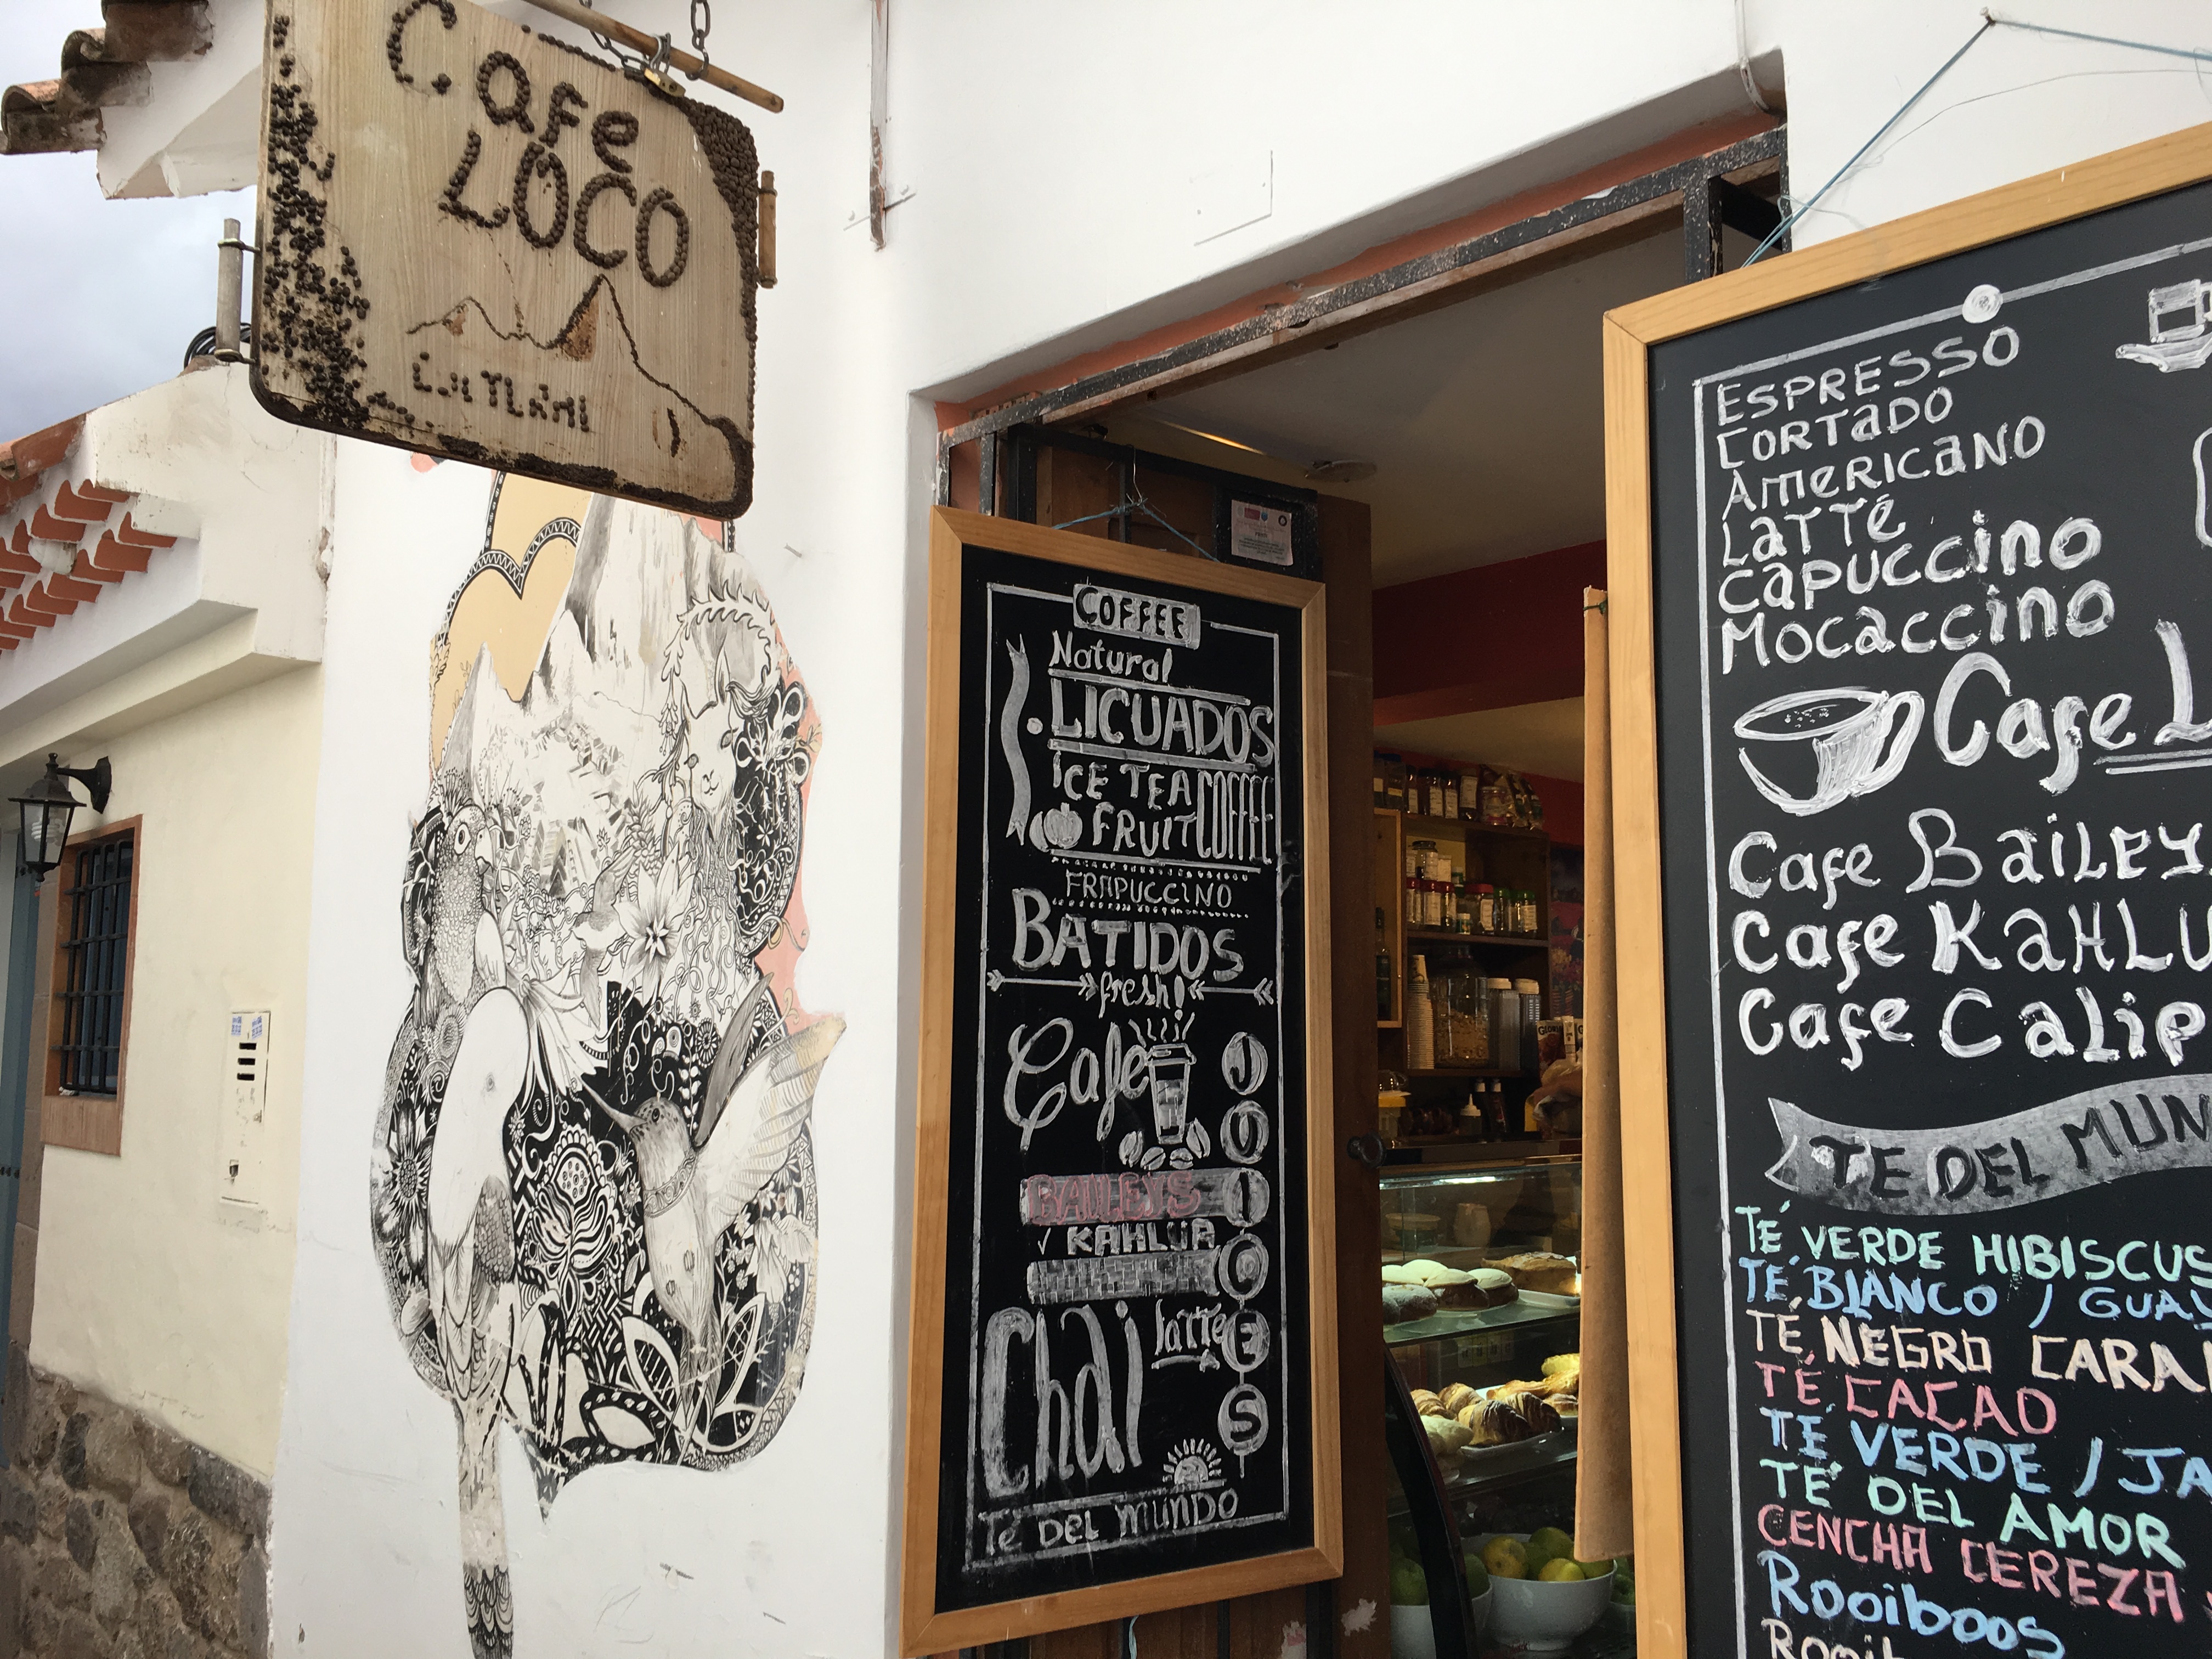 Cafe
LOCO
COFFEE
Natural
LICUADOS
ICE TEA
FRUIT
COFFEE
FRAPUCCINO
BATIDOS
fresh!
Cafe
JUICES
BAILEYS
KAHLUA
Chai latte
Te DEL MUNDO
ESPRESSO
CORTADO
AMERICANO
LATTE
CAPUCCINO
MOCACCINO
Cafe L
Cafe BAILEY
Cafe KAHLU
Cafe CALIP
TE DEL MUN
TÉ VERDE HIBISCUS
TÉ BLANCO / GUA
TÉ NEGRO CARA
TÉ CACAO
TÉ VERDE / JA
TÉ DEL AMOR
CENCHA CEREZA
ROOIBOOS